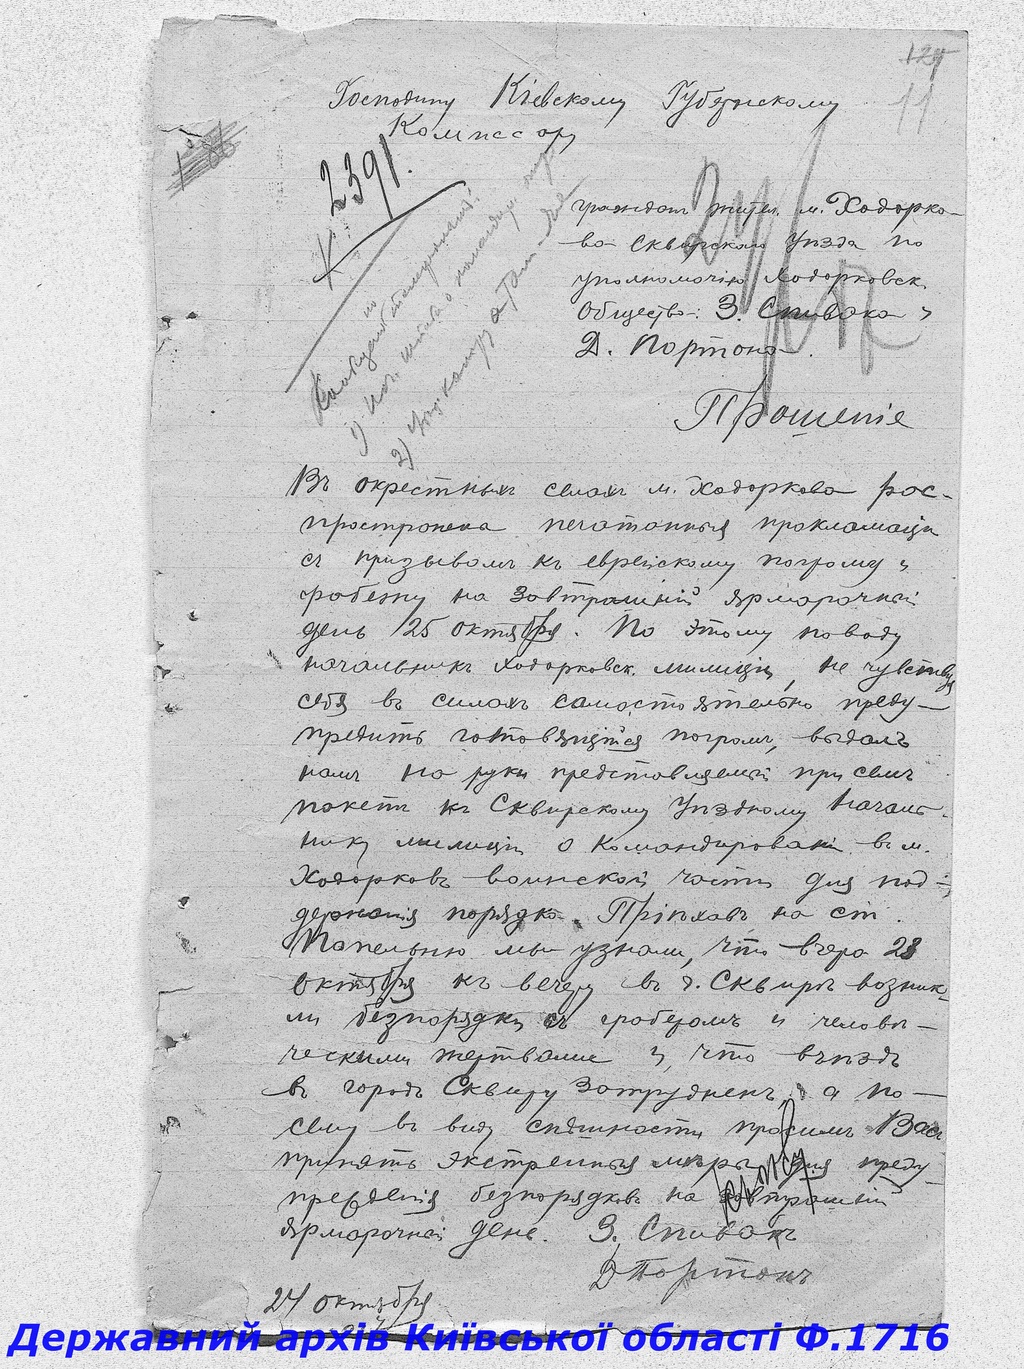 124
11
Господину Кіевскому Губернскому
Комиссару
№ 2391.
24/X
граждан жител. м. Ходорко-
ва Сквирского Уѣзда по
уполномочію Ходорковск.
Общества: З. Спивака и
Д. Портона.
Прошеніе
Въ окрестныхъ селахъ м. Ходоркова рас-
пространена печатанныя прокламаціи
съ призывомъ къ еврейскому погрому и
грабежу на завтрашній ярмарочный
день 25 октября. По этому поводу
начальникъ Ходорковск. милиціи, не чувствуя
себя въ силахъ самостоятельно преду-
предить готовящійся погромъ, выдалъ
намъ на руки представляемый при семъ
пакетъ къ Сквирскому Уѣздному Началь-
нику милиціи о командированіи въ м.
Ходорковъ воинской части для под-
держанія порядка. Пріѣхавъ на ст.
Попельню мы узнали, что вчера 23
октября къ вечеру въ г. Сквирѣ возник-
ли безпорядки съ грабежомъ и человѣ-
ческими жертвами и, что въѣздъ
въ городъ Сквиру затрудненъ, а по-
сему въ виду спѣшности просимъ Васъ
принять экстренныя мѣры для преду-
прежденія безпорядковъ на завтрашній
ярмарочный день. З. Спивакъ
Д Портонъ
24 октября
Державний архів Київської області Ф.1716